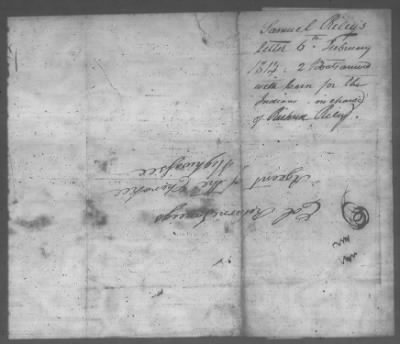 Samuel Riley's
letter 6th February
1817. 2 Boats
with Corn for the
Indians in charge
of Richard Riley.
Col Return J Meigs
Agent of the Cherokee
Highwassee